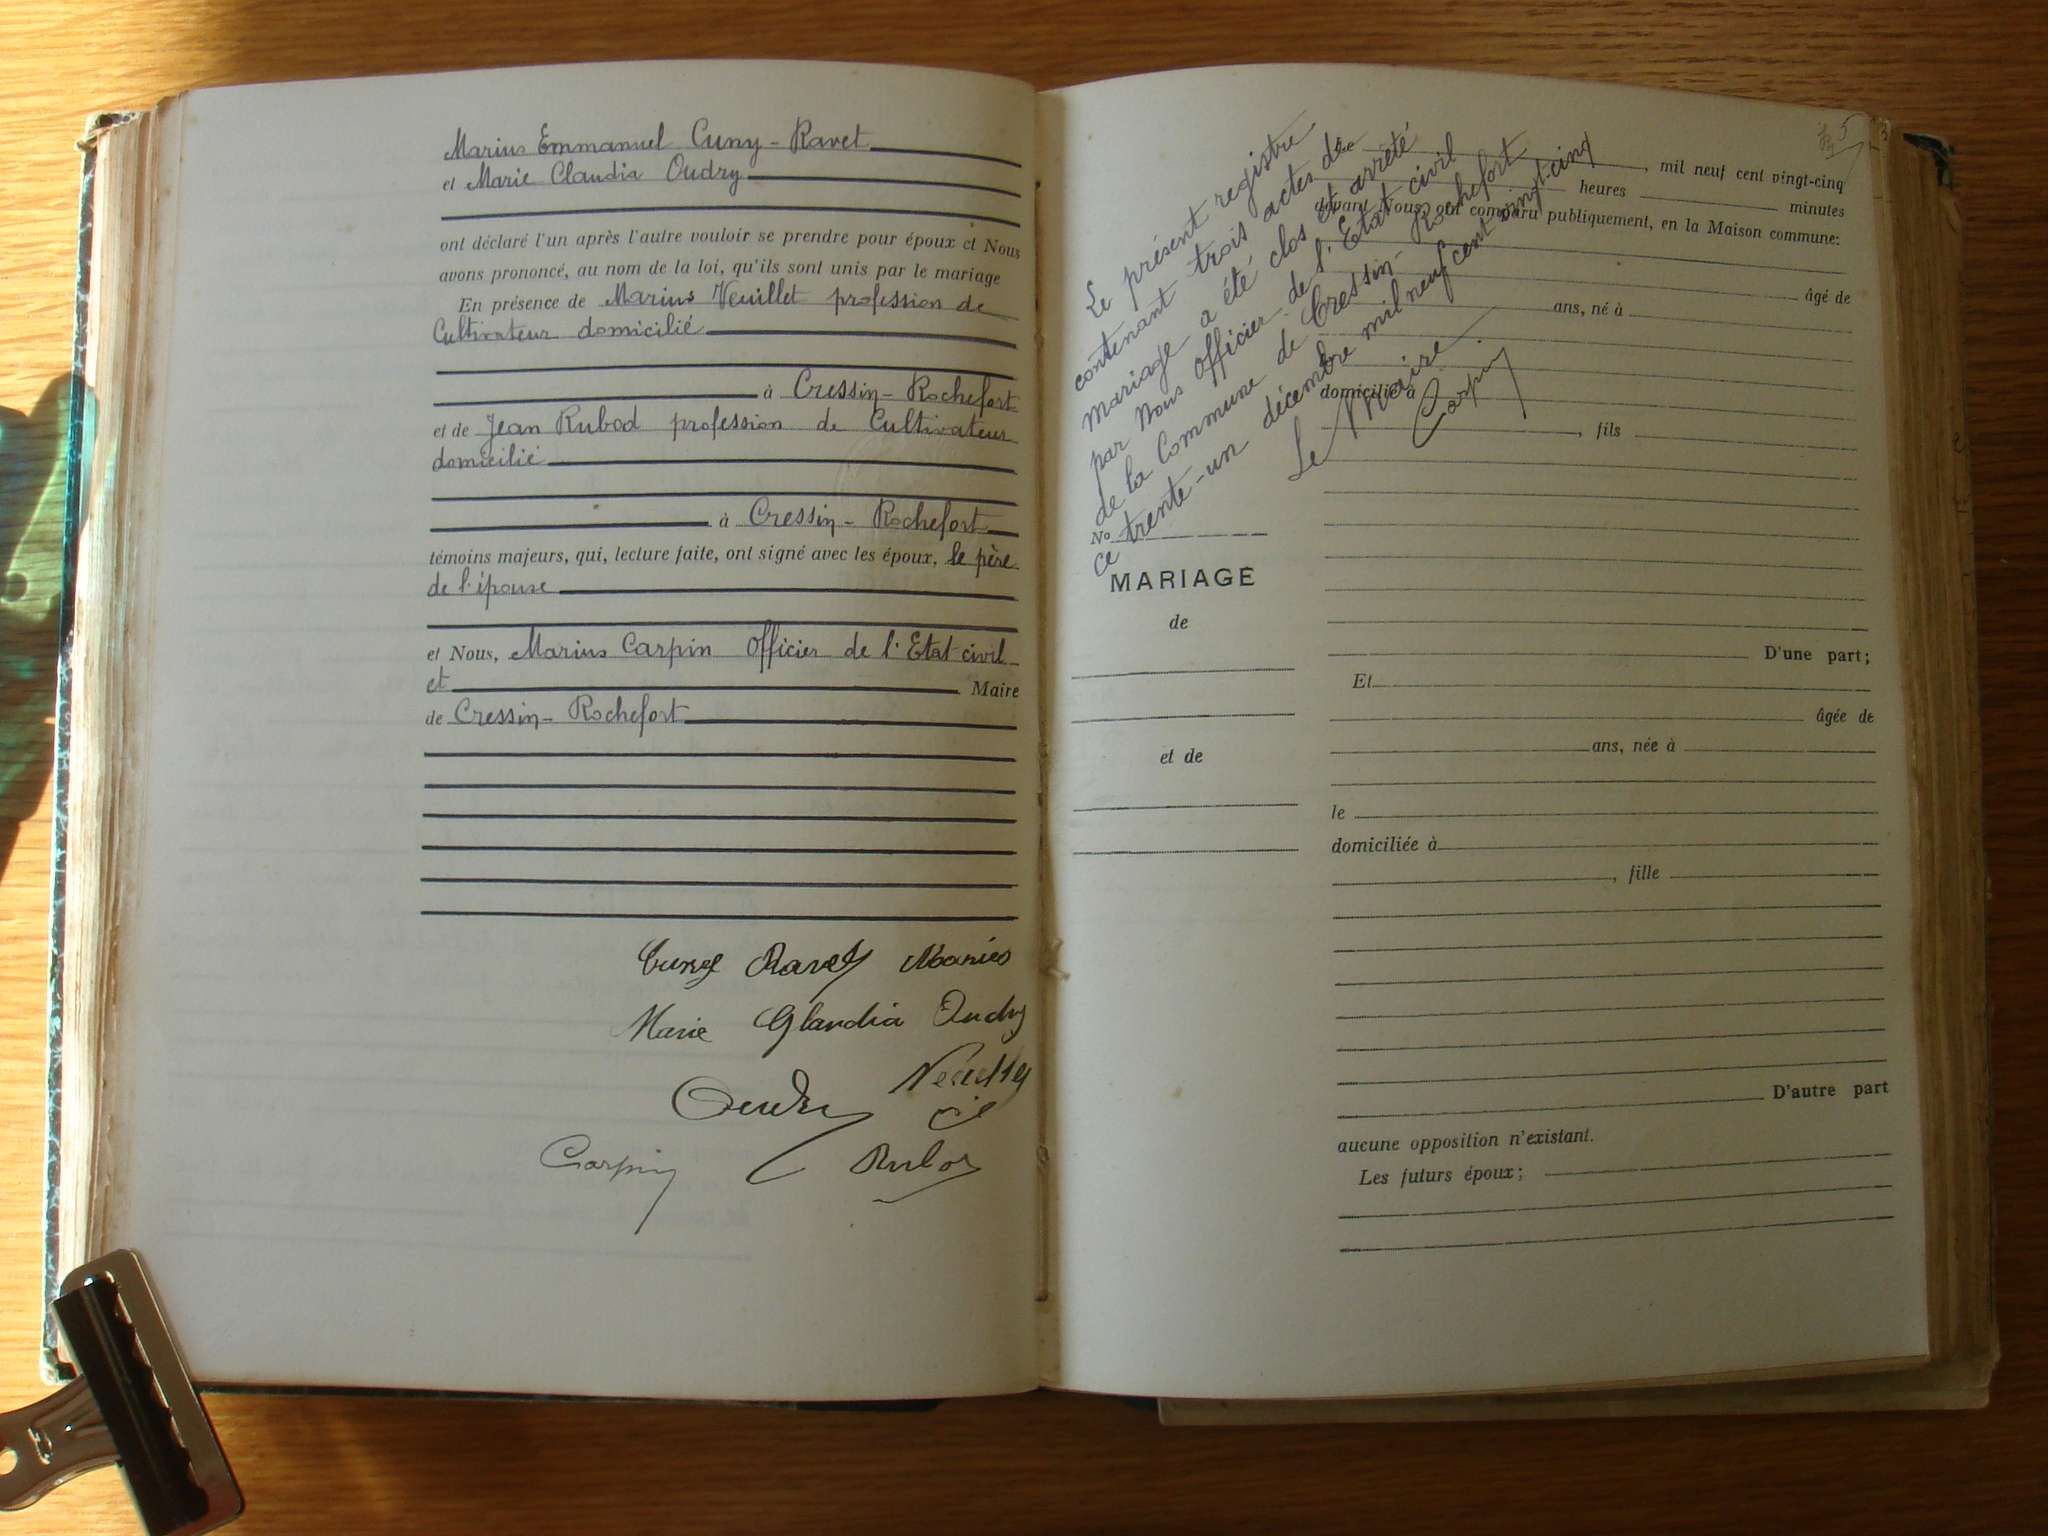 Marius Emmanuel Cuny-Ravet
et Marie Claudia Oudry
ont déclaré l'un après l'autre vouloir se prendre pour époux et Nous
avons prononcé, au nom de la loi, qu'ils sont unis par le mariage
En présence de Marius Veuillet profession de
Cultivateur domicilié
à Cressin-Rochefort
et de Jean Rubod profession de Cultivateur
domicilié
à Cressin-Rochefort
témoins majeurs, qui, lecture faite, ont signé avec les époux, le père
de l'épouse
et Nous, Marius Carpin Officier de l'Etat-civil
et Maire
de Cressin-Rochefort
Cuny Ravet Marius
Marie Claudia Oudry
Oudry
Carpin
Rubod
5
Le présent registre
contenant trois actes de
mariage a été clos et arrêté
par Nous Officier de l'Etat civil
de la Commune de Cressin-Rochefort
ce trente-un décembre mil neuf cent vingt-cinq
Le Maire
Carpin
Le , mil neuf cent vingt-cinq
heures minutes
devant Nous, ont comparu publiquement, en la Maison commune:
âgé de
ans, né à
domicilié à
, fils
No
MARIAGE
de
et de
D'une part;
Et
âgée de
ans, née à
le
domiciliée à
, fille
D'autre part
aucune opposition n'existant.
Les futurs époux;